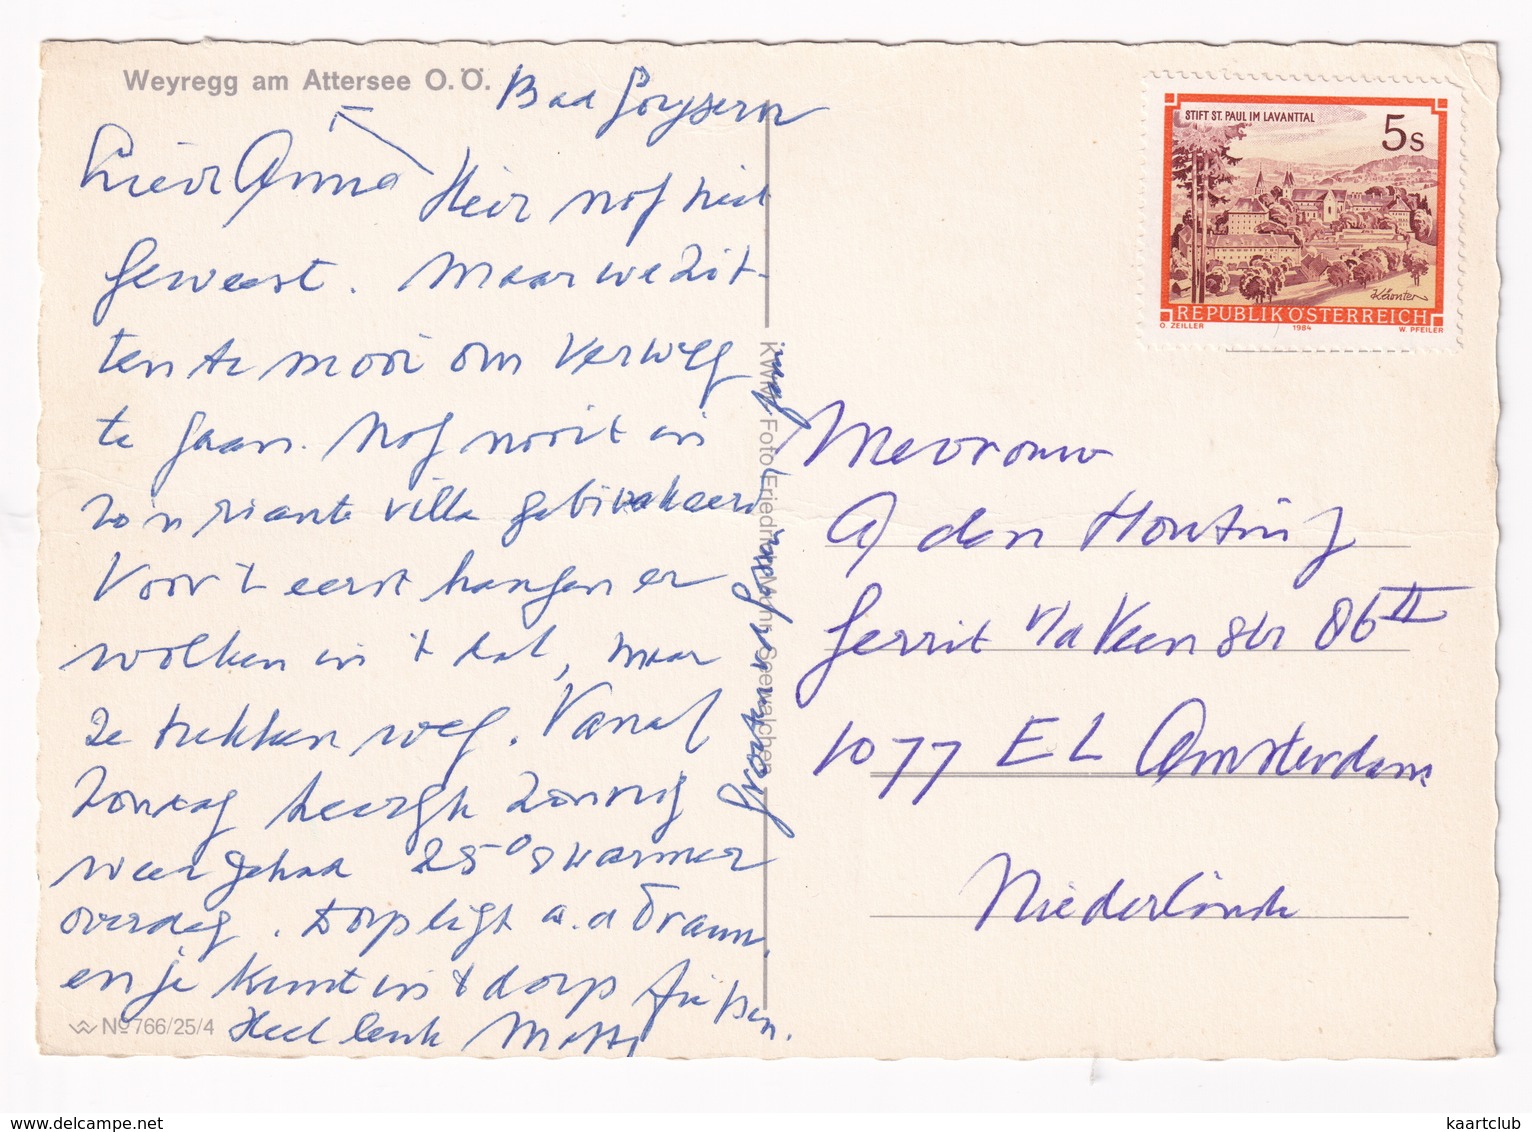 Weyregg am Attersee O.Ö.
Bad Goysern
Lieve Anna Hier nog niet
geweest. Maar we zit-
ten te mooi om ver weg
te gaan. Nog nooit in
zo'n riante villa gebivakeerd
Voor 't eerst hangen er
wolken in 't dal, maar
ze trekken weg. Vanaf
Zondag heerlijk zonnig
weer gehad 25° & warmer
overdag. Dorp ligt a.d Traun.
en je kunt in 't dorp
Heel leuk
Groeten
KWM Foto Friedrich Mohr, Seewalchen
Nº 766/25/4
STIFT ST. PAUL IM LAVANTTAL
5s
Kärnten
REPUBLIK ÖSTERREICH
O. ZEILLER 1984 W. PFEILER
Mevrouw
A den Houting
Gerrit v/d Veen str 86 II
1077 EL Amsterdam
Niederlände
www.delcampe.net
kaartclub